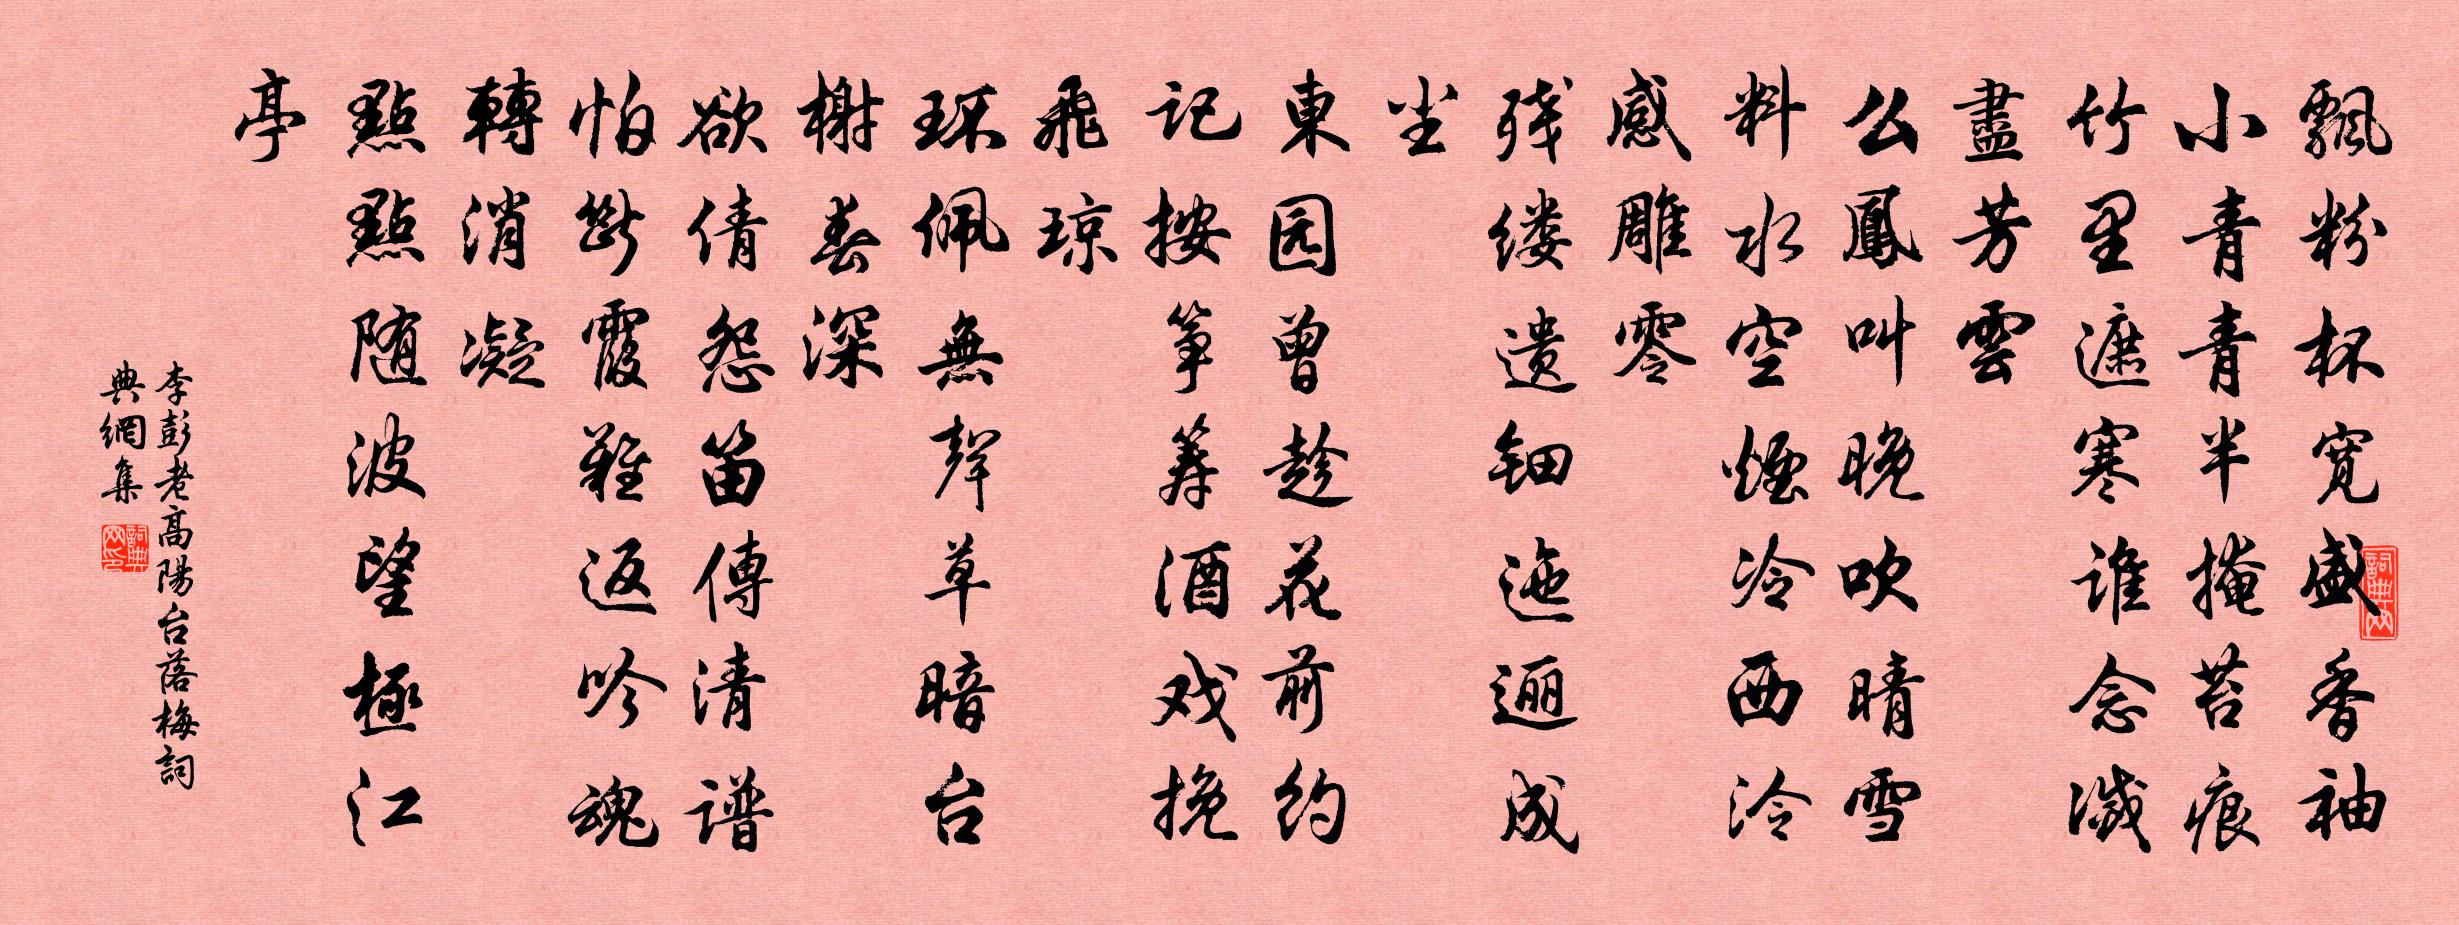 飄粉杯宽盛香袖
小青青半掩苔痕
竹里遮寒谁念減
盡芳雲
么鳳叫晚吹晴雪
料水空煙冷西泠
感雕零
残缕遗钿迤逦成
尘
東园曾趁花前約
记按筝筹酒戏挽
飛琼
环佩無聲草暗台
榭春深
欲倩怨笛傳清谱
怕斷霞難返吟魂
轉消凝
點點随波望極江
亭
李彭老高陽台落梅詞
典網集
詞典网
詞典网印